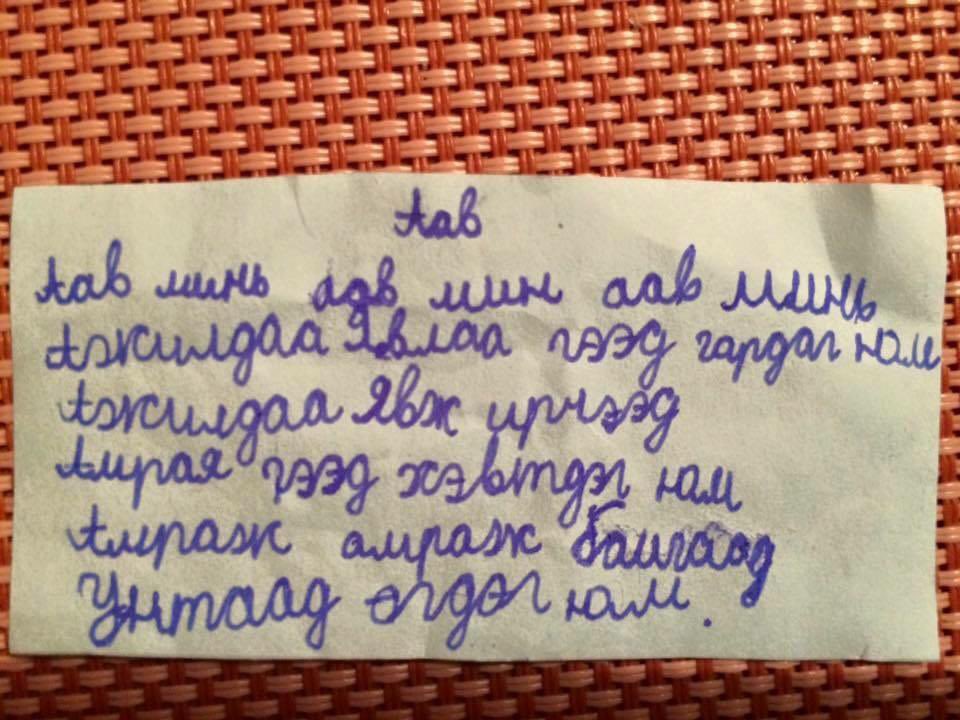 Аав
Аав минь аав мин аав минь
Ажилдаа Явлаа гээд гардаг юм
Ажилдаа Явж ирчээд
Амрая гээд хэвтдэг юм
Амраж амраж байгаад
Унтаад өгдөг юм.